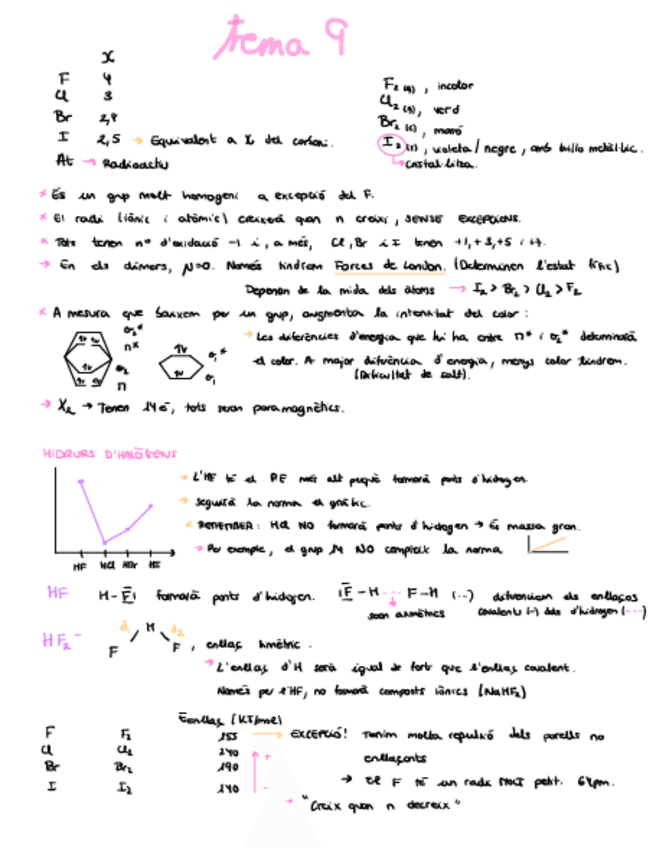 tema 9
χ
F 4
Cl 3
Br 2,8
I 2,5 → Equivalent a χ del carboni.
At → Radioactiu
F₂ (g), incolor
Cl₂ (g), verd
Br₂ (l), marró
I₂ (s), violeta / negre, amb brillo metàl·lic.
↳ Cristal·litza.
* És un grup molt homogeni a excepció del F.
* El radi (iònic i atòmic) creixerà quan n creixi, SENSE EXCEPCIONS.
* Tots tenen nº d'oxidació -1 i, a més, Cl, Br i I tenen +1, +3, +5 i +7.
→ En els dímers, μ=0. Només tindrem Forces de London. (Determinen l'estat físic)
Depenen de la mida dels àtoms → I₂ > Br₂ > Cl₂ > F₂
* A mesura que baixem per un grup, augmenta la intensitat del color:
σ₂*
π*
σ₂
π
σ₁*
σ₁
→ Les diferències d'energia que hi ha entre π* i σ₂* determinarà
el color. A major diferència d'energia, menys color tindrem.
(Dificultat de salt).
→ X₂ → Tenen 14 e⁻, tots seran paramagnètics.
HIDRURS D'HALÒGENS
HF HCl HBr HI
→ L'HF té el PE més alt perquè formarà ponts d'hidrogen.
→ Seguirà la norma el gràfic.
REMEMBER: HCl NO formarà ponts d'hidrogen → És massa gran.
→ Per exemple, el grup 14 NO compleix la norma
HF H-F formarà ponts d'hidrogen. F-H ---- F-H (...) diferenciem els enllaços
covalents (-) dels d'hidrogen (---)
HF₂⁻ d₁ H d₂
F F, enllaç simètric.
→ L'enllaç d'H serà igual de fort que l'enllaç covalent.
Només per l'HF, no formarà composts iònics (NaHF₂)
Eenllaç (KJ/mol)
F F₂ 155 → EXCEPCIÓ! Tenim molta repulsió dels parells no
enllaçants
Cl Cl₂ 240 +
Br Br₂ 190
→ El F té un radi molt petit. 64pm.
I I₂ 140 -
→ "Creix quan n decreix"